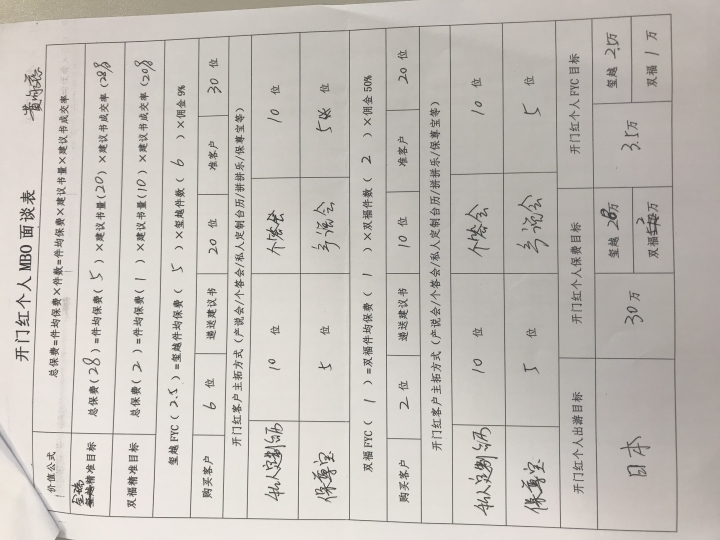 开门红个人MBO面谈表
价值公式 总保费=件均保费×件数=件均保费×建议书量×建议书成交率
玺越精准目标 总保费(28)=件均保费(5)×建议书量(20)×建议书成交率(28%)
双福精准目标 总保费(2)=件均保费(1)×建议书量(10)×建议书成交率(20%)
玺越FYC(2.5)=玺越件均保费(5)×玺越件数(6)×佣金9%
购买客户 6位 递送建议书 20位 准客户 30位
开门红客户主拓方式(产说会/个答会/私人定制台历/拼拼乐/保尊宝等)
私人定制台历 10位 个答会 10位
保尊宝 5位 产说会 5位
双福FYC(1)=双福件均保费(1)×双福件数(2)×佣金50%
购买客户 2位 递送建议书 10位 准客户 20位
开门红客户主拓方式(产说会/个答会/私人定制台历/拼拼乐/保尊宝等)
私人定制台历 10位 个答会 10位
保尊宝 5位 产说会 5位
开门红个人出游目标 开门红个人保费目标 开门红个人FYC目标
日本 30万 玺越 28万 3.5万 玺越 2.5万
双福 2万 双福 1万